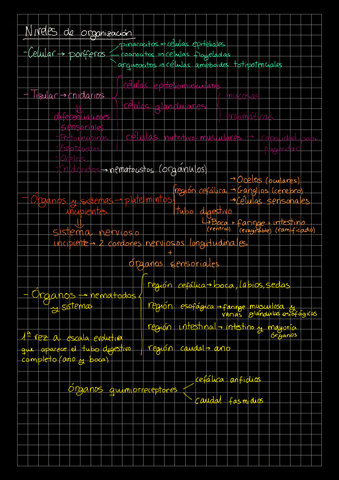 Niveles de organización
-Celular → poríferos
pinacocitos → células epiteliales
coanocitos → células flageladas
arqueocitos → células ameboides totipotenciales
-Tisular → cnidarios
células epiteliomusculares
células glandulares
mucosas
enzimáticas
diferenciaciones
sensoriales
células nutritivo musculares → capacidad para
→ nematocistos (orgánulos)
-Órganos y sistemas → platelmintos
incipientes
región cefálica
→ Ocelos (oculares)
→ Ganglios (cerebro)
→ Células sensoriales
tubo digestivo
↳ Boca + Faringe + intestino
(ventral) (ramificado)
sistema nervioso
incipiente → 2 cordones nerviosos longitudinales
+
órganos sensoriales
-Órganos → nematodos
y sistemas
región cefálica → boca, labios, sedas
región esofágica → faringe musculosa y
varias glándulas esofágicas
región intestinal → intestino y mayoría
órganos
región caudal → ano
1ª vez a escala evolutiva
que aparece el tubo digestivo
completo (ano y boca)
órganos quimiorreceptores
cefálica anfidios
caudal fasmidios